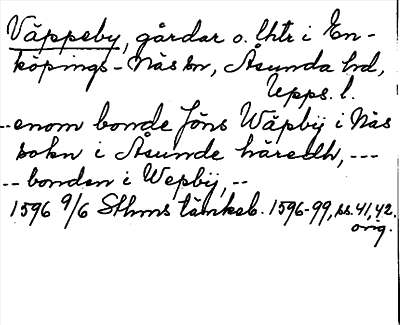 Väppeby, gårdar o. lhtr i En-
köpings-Näs sn, Åsunda hd,
Upps. l.
--enom bonde Jöns Wäpbij i Näs
sokn i Åsunde häredh, ---
-- bonden i Wepbij, --
1596 9/6 Sthms tänkeb. 1596-99, ss. 41, 42.
orig.